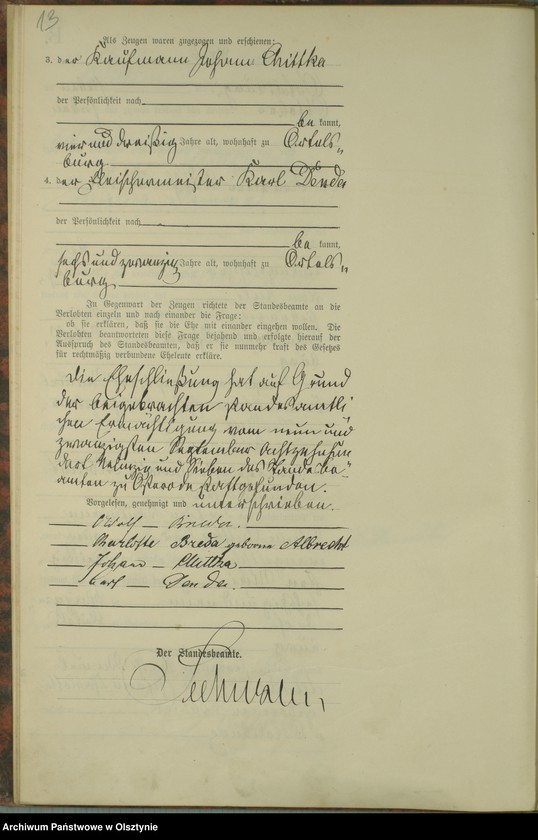 13
Als Zeugen waren zugezogen und erschienen:
3. der Kaufmann Johann Chittka
der Persönlichkeit nach
be kannt,
vier und dreißig Jahre alt, wohnhaft zu Ortels„
burg
4. der Fleischermeister Karl Denda
der Persönlichkeit nach
be kannt,
sechs und zwanzig Jahre alt, wohnhaft zu Ortels„
burg
In Gegenwart der Zeugen richtete der Standesbeamte an die
Verlobten einzeln und nach einander die Frage:
ob sie erklären, daß sie die Ehe mit einander eingehen wollen. Die
Verlobten beantworteten diese Frage bejahend und erfolgte hierauf der
Ausspruch des Standesbeamten, daß er sie nunmehr kraft des Gesetzes
für rechtmäßig verbundene Eheleute erkläre.
Die Eheschließung hat auf Grund
der beigebrachten standesamtli
chen Ermächtigung vom neun und
zwanzigsten September Achtzehnhun
dert Neunzig und Sieben des Standesbe„
amten zu Osterode stattgefunden.
Vorgelesen, genehmigt und unterschrieben.
Adolf Breda.
Charlotte Breda geborne Albrecht
Johann Chittka
Carl Denda.
Der Standesbeamte.
Archiwum Państwowe w Olsztynie